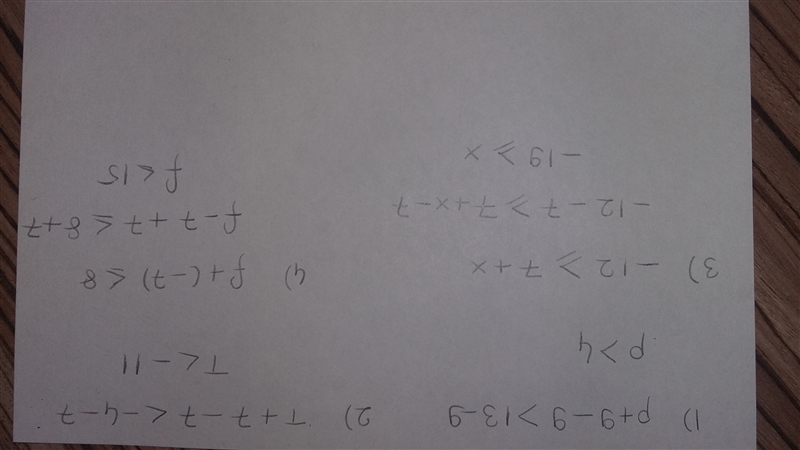 1) p+9-9 >13-9
p>4
2) T+7-7 < -4-7
T< -11
3) -12 ⩾ 7+x
-12-7 ⩾ 7+x-7
-19 ⩾ x
4) f+(-7) ⩽ 8
f-7+7 ⩽ 8+7
f<15